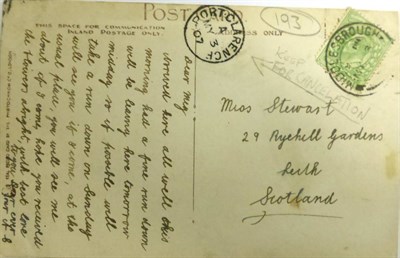 POST
THIS SPACE FOR COMMUNICATION
INLAND POSTAGE ONLY.
Dear Meg
Arrived here all well this
morning had a fine run down
will be leaving here tomorrow
midday so if possible will
take a run down on Sunday
will see you if I come, at the
usual place, you will see me
about if I come, hope you received
the flowers alright, with best love
PORT CLARENCE
MY 3
07
193
MIDDLESBROUGH
FOR CANCELLATION
Miss Stewart
29 Ryehill Gardens
Leith
Scotland